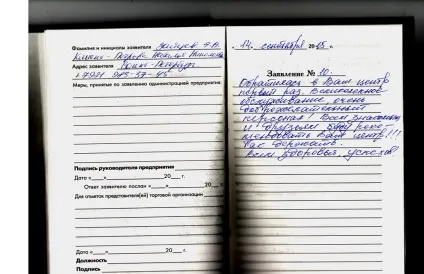 Фамилия и инициалы заявителя
Адрес заявителя Санкт-Петербург
Меры, принятые по заявлению администрацией предприятия:
Подпись руководителя предприятия
Дата «____»____________20___ г.
Ответ заявителю послан «____»____________20___ г.
Для отметок представителя(ей) торговой организации
Дата «____»____________20___ г.
Должность
Подпись
„14„ сентября 2015 г.
Заявление № 10.
Обратилась в Ваш центр
первый раз. Великолепное
обслуживание, очень
доброжелательный
персонал! Всем знакомым
и друзьям буду реко-
мендовать Ваш центр!!!
Так держать.
Всем здоровья, успехов!